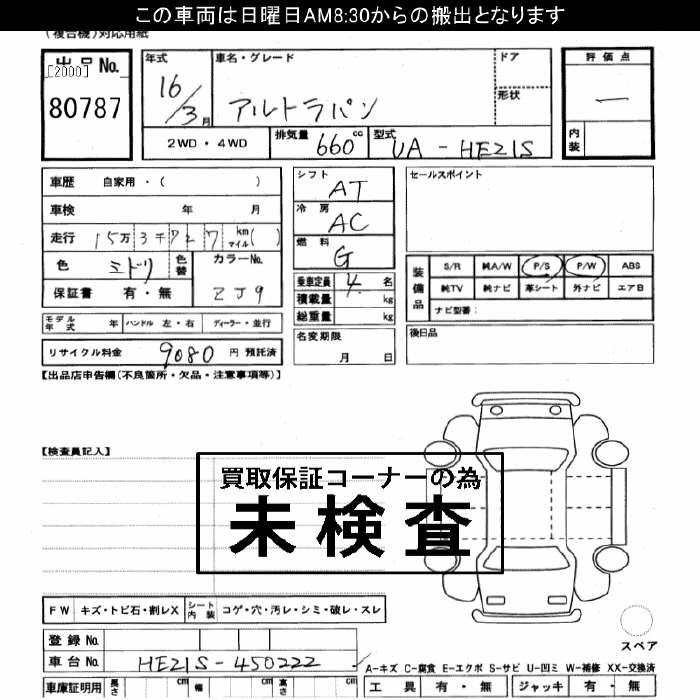 この車両は日曜日AM8:30からの搬出となります
(複合機)対応用紙
出品No.
[2000]
80787
年式
16/3月
車名・グレード
アルトラパン
ドア
形状
評価点
一
内装
2WD・4WD
排気量
660cc
型式
UA-HE21S
車歴 自家用・( )
車検 年 月
走行 15万3千727 km マイル( )
色 ミドリ
色替
カラーNo.
ZJ9
保証書 有・無
シフト
AT
冷房
AC
燃料
G
乗車定員 4名
積載量 kg
総重量 kg
セールスポイント
装備品
S/R 純A/W P/S P/W ABS
純TV 純ナビ 革シート 外ナビ エアB
ナビ型番:
モデル年式 年 ハンドル 左・右 ディーラー・並行
名変期限
月 日
後日品
リサイクル料金 9080 円 預託済
【出品店申告欄(不良箇所・欠品・注意事項等)】
【検査員記入】
買取保証コーナーの為
未検査
FW キズ・トビ石・割レX シート内装 コゲ・穴・汚レ・シミ・破レ・スレ
スペア
登録No.
車台No. HE21S-450222
A-キズ C-腐食 E-エクボ S-サビ U-凹ミ W-補修 XX-交換済
車庫証明用 長さ cm 幅 cm 高さ cm
工具 有・無 ジャッキ 有・無